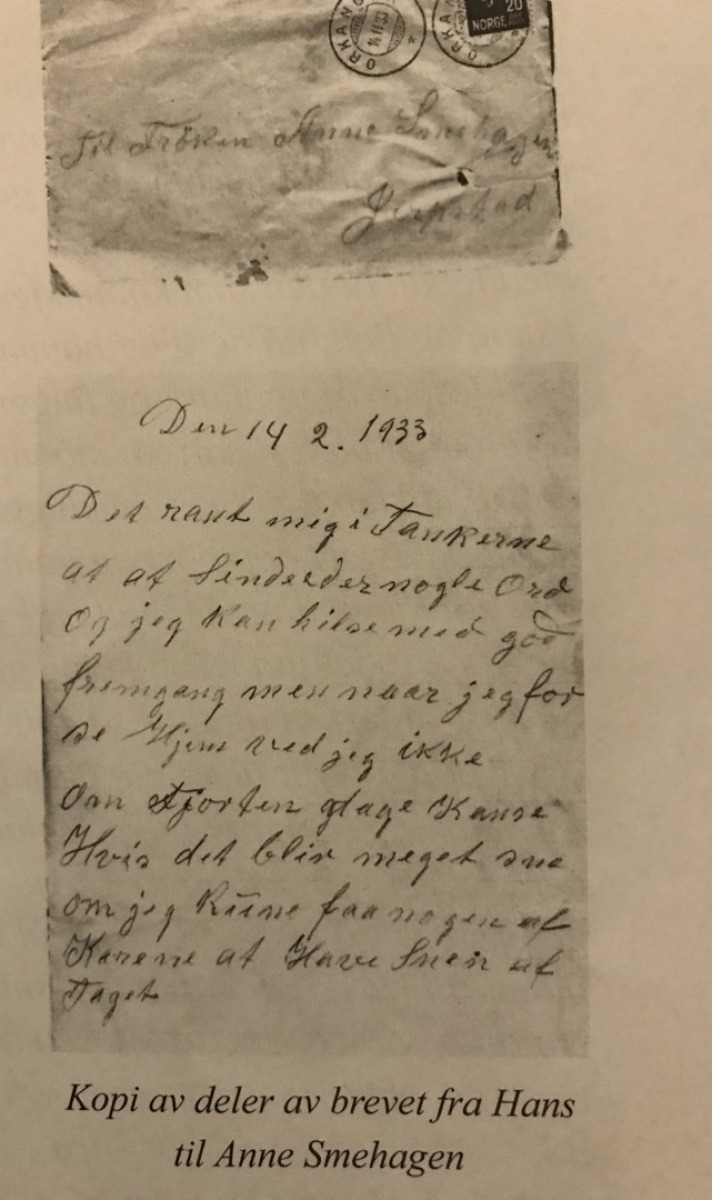 ORKANG
14 II 33
ORKA
20
NORGE
Til Frøken Anne Smehagen
Den 14 2. 1933
Det rant mig i Tankerne
at at Sinde eder nogle Ord
Og jeg Kan hilse med god
fremgang men naar jeg for
se Hjem ved jeg ikke
Om Fjorten dage Kanse
Hvis det blir meget sne
om jeg Kune faa nogen af
Karene at Have Sneen af
Taget
Kopi av deler av brevet fra Hans
til Anne Smehagen